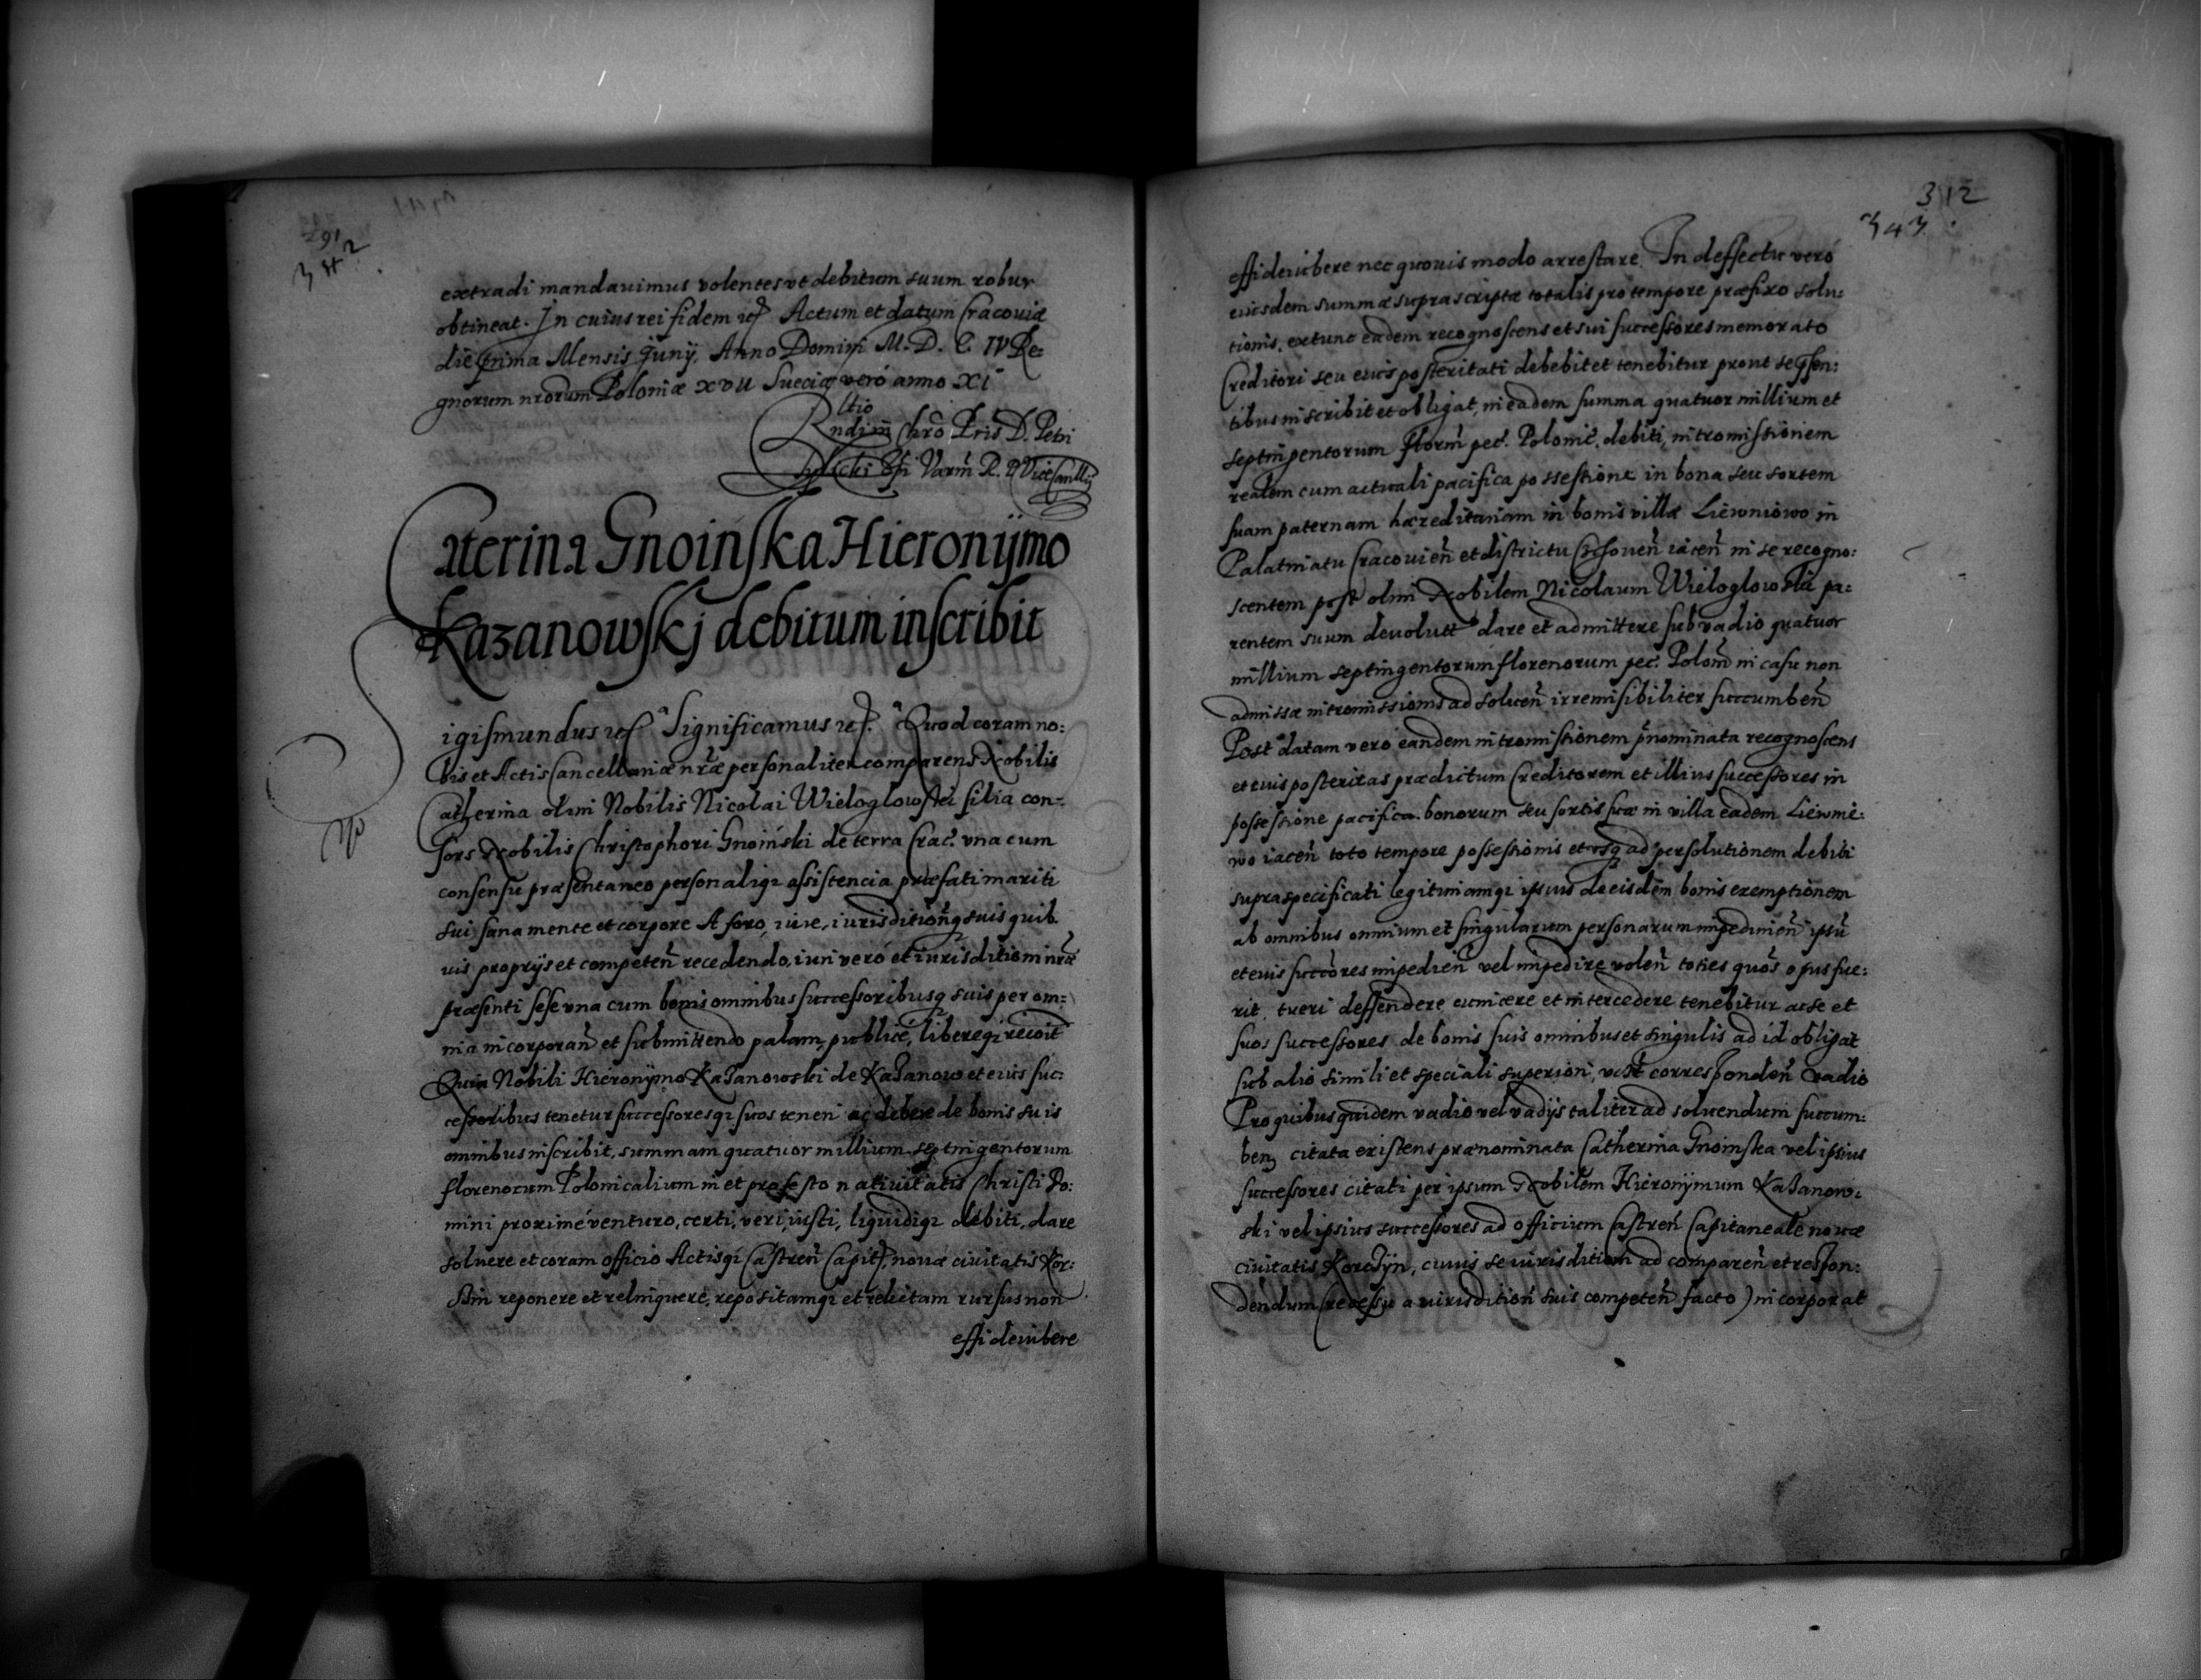 291
342
extradi mandauimus volentes vt debitum suum robur
obtineat. In cuius rei fidem etc Actum et datum Cracouiæ
die prima Mensis Junij, Anno Domini M. D. C. IV Re:
gnorum nrorum Poloniæ XVII Sueciæ veró anno XI
Rndi in Chro Pris D. Petri
Tylicki Epi Varm R. P. ViceCancllij
Caterina Gnoinska Hieronijmo
Kazanowskj debitum inscribit
Sigismundus etc Significamus etc. Quod coram no:
bis et Actis Cancellariæ nræ personaliter comparens Nobilis
Catherina olim Nobilis Nicolai Wieloglowski filia con-
sors Nobilis Christophori Gnoiński de terra Crac. vna cum
consensu præsentaneo personaliqz assistencia præfati mariti
sui sana mente et corpore A foro, iure, iurisditionqz suis quib
uis proprijs et competen recedendo, iuri veró et iurisditioni nræ
præsenti sese vna cum bonis omnibus successoribusqz suis per om:
nia incorporan et submittendo palam, publicé, libereqz recoit
Quia Nobili Hieronijmo Kazanowski de Kazanow et eius suc:
cessoribus tenetur successoresqz suos teneri ac debere de bonis suis
omnibus inscribit, summam quatuor millium septingentorum
florenorum Polonicalium in et pro festo natiuitatis Christi Do:
mini proximé venturo, certi, veri, iusti, liquidiqz debiti, dare
soluere et coram officio Actisqz Castren Capit, nouæ ciuitatis Kor:
czin reponere et relinquere, repositamqz et relictam rursus non
effideiubere
312
343
effideiubere nec quouis modo arrestare. In deffectu veró
eiusdem summæ suprascriptæ totalis pro tempore præfixo solu:
tionis, extunc eadem recognoscens et sui successores memorato
Creditori seu eius posteritati debebit et tenebitur prout se qsen:
tibus inscribit et obligat, in eadem summa quatuor millium et
septingentorum florm pec. Polonic. debiti, intromissionem
realem cum actuali pacifica possessione in bona seu sortem
suam paternam hæreditariam in bonis villæ Liewniowo in
Palatinatu Cracouien et districtu Czchouen iacen in se recogno:
scentem post olim Nobilem Nicolaum Wieloglowski pa:
rentem suum deuolutt dare et admittere sub vadio quatuor
millium septingentorum florenorum pec. Polon in casu non
admissæ intromissionis ad soluen irremisibiliter succumben
Post datam vero eandem intromissionem pnominata recognoscens
et eius posteritas prædictum Creditorem et illius successores in
possessione pacifica bonorum seu sortis suæ in villa eadem Liewnio:
wo iacen toto tempore possessionis et vsqz ad persolutionem debiti
supraspecificati legitimamqz ipsius de eisdem bonis exemptionem
ab omnibus omnium et singularum personarum impedimen ipsu
et eius succores impedien vel impedire volen toties quos opus fue:
rit, tueri deffendere euincere et intercedere tenebitur ac se et
suos successores de bonis suis omnibus et singulis ad id obligat
sub alio simili et speciali superiori, vt st corresponden vadio
Pro quibus quidem vadio vel vadijs taliter ad soluendum succum:
benz citata existens prænominata Catherina Gnoinska vel ipsius
successores citati per ipsum Nobilem Hieronijmum Kazanow:
ski vel ipsius successores ad officium Castren Capitaneale nouæ
ciuitatis Korczyn, cuius se iurisdition ad comparen et respon:
dendum (recessu a iurisdition suis competen facto) incorporat